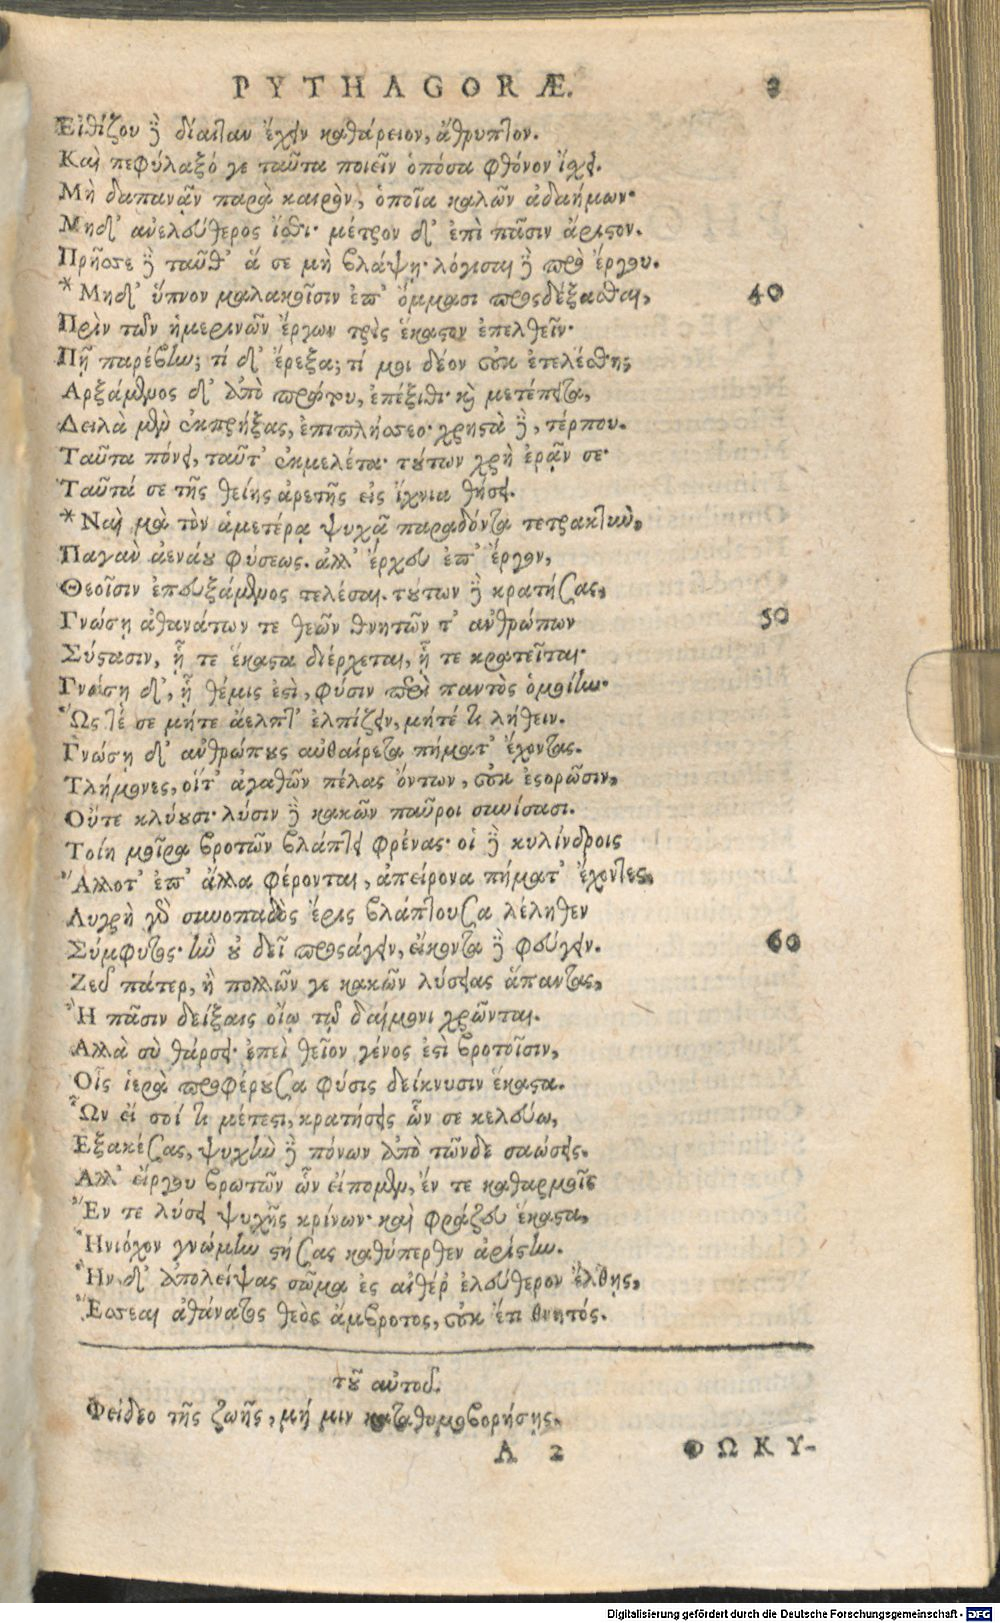 PYTHAGORÆ. 3
Εἰθίζου δὲ δίαιταν ἔχειν καθάρειον, ἄθρυπτον.
Καὶ πεφύλαξό γε ταῦτα ποιεῖν ὁπόσα φθόνον ἴχει.
Μὴ δαπανᾷν παρὰ καιρὸν, ὁποῖα καλῶν ἀδαήμων·
Μηδ' ἀνελεύθερος ἴσθι· μέτρον δ' ἐπὶ πᾶσιν ἄριστον.
Πρῆσσε δὲ ταῦθ' ἅ σε μὴ βλάψῃ· λόγισαι δὲ πρὸ ἔργου.
*Μηδ' ὕπνον μαλακοῖσιν ἐπ' ὄμμασι προσδέξασθαι, 40
Πρὶν τῶν ἡμερινῶν ἔργων τρὶς ἕκαστον ἐπελθεῖν·
Πῆ παρέβην; τί δ' ἔρεξα; τί μοι δέον οὐκ ἐτελέσθη;
Αρξάμενος δ' ἀπὸ πρώτου, ἐπέξιθι· καὶ μετέπειτα,
Δειλὰ μὲν ἐκπρήξας, ἐπιπλήσσεο· χρηστὰ δὲ, τέρπου.
Ταῦτα πόνει, ταῦτ' ἐκμελέτα· τούτων χρὴ ἐρᾷν σε·
Ταῦτά σε τῆς θείης ἀρετῆς εἰς ἴχνια θήσει.
*Ναὶ μὰ τὸν ἁμετέρᾳ ψυχᾷ παραδόντα τετρακτὺν,
Παγὰν ἀενάου φύσεως. ἀλλ' ἔρχευ ἐπ' ἔργον,
Θεοῖσιν ἐπευξάμενος τελέσαι. τούτων δὲ κρατήσας,
Γνώσῃ ἀθανάτων τε θεῶν θνητῶν τ' ἀνθρώπων 50
Σύστασιν, ᾗ τε ἕκαστα διέρχεται, ᾗ τε κρατεῖται·
Γνώσῃ δ', ᾗ θέμις ἐστὶ, φύσιν περὶ παντὸς ὁμοίην·
Ὥστέ σε μήτε ἄελπτ' ἐλπίζειν, μήτέ τι λήθειν.
Γνώσῃ δ' ἀνθρώπους αὐθαίρετα πήματ' ἔχοντας.
Τλήμονες, οἵτ' ἀγαθῶν πέλας ὄντων, οὐκ ἐσορῶσιν,
Οὔτε κλύουσι· λύσιν δὲ κακῶν παῦροι συνίσασι.
Τοίη μοῖρα βροτῶν βλάπτει φρένας· οἱ δὲ κυλίνδροις
Ἄλλοτ' ἐπ' ἄλλα φέρονται, ἀπείρονα πήματ' ἔχοντες.
Λυγρὴ γὰρ συνοπαδὸς ἔρις βλάπτουσα λέληθεν
Σύμφυτος· ἣν οὐ δεῖ προσάγειν, εἴκοντα δὲ φεύγειν. 60
Ζεῦ πάτερ, ἢ πολλῶν γε κακῶν λύσειας ἅπαντας,
Ἢ πᾶσιν δείξαις οἵῳ τῷ δαίμονι χρῶνται.
Αλλὰ σὺ θάρσει· ἐπεὶ θεῖον γένος ἐστὶ βροτοῖσιν,
Οἷς ἱερὰ προφέρουσα φύσις δείκνυσιν ἕκαστα.
Ὧν εἴ σοί τι μέτεστι, κρατήσεις ὧν σε κελεύω,
Εξακέσας, ψυχὴν δὲ πόνων ἀπὸ τῶνδε σαώσεις.
Αλλ' εἴργου βρωτῶν ὧν εἴπομεν, ἔν τε καθαρμοῖς
Ἔν τε λύσει ψυχῆς κρίνων· καὶ φράζευ ἕκαστα,
Ἡνιόχον γνώμην στήσας καθύπερθεν ἀρίστην.
Ἢν δ' ἀπολείψας σῶμα ἐς αἰθέρ' ἐλεύθερον ἔλθῃς,
Ἔσσεαι ἀθάνατος θεὸς ἄμβροτος, οὐκ ἔτι θνητός.
τοῦ αὐτοῦ.
Φείδεο τῆς ζωῆς, μή μιν καταθυμοβορήσῃς.
A 2 ΦΩΚΥ-
Digitalisierung gefördert durch die Deutsche Forschungsgemeinschaft - DFG